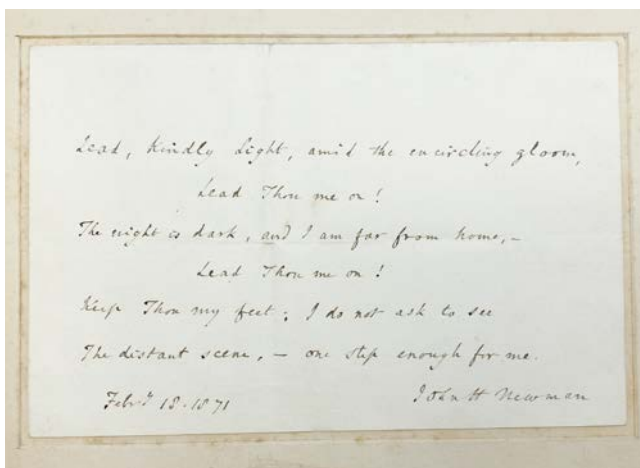 Lead, Kindly Light, amid the encircling gloom,
Lead Thou me on!
The night is dark, and I am far from home,–
Lead Thou me on!
Keep Thou my feet; I do not ask to see
The distant scene,– one step enough for me.
Febry 18. 1871 John H Newman